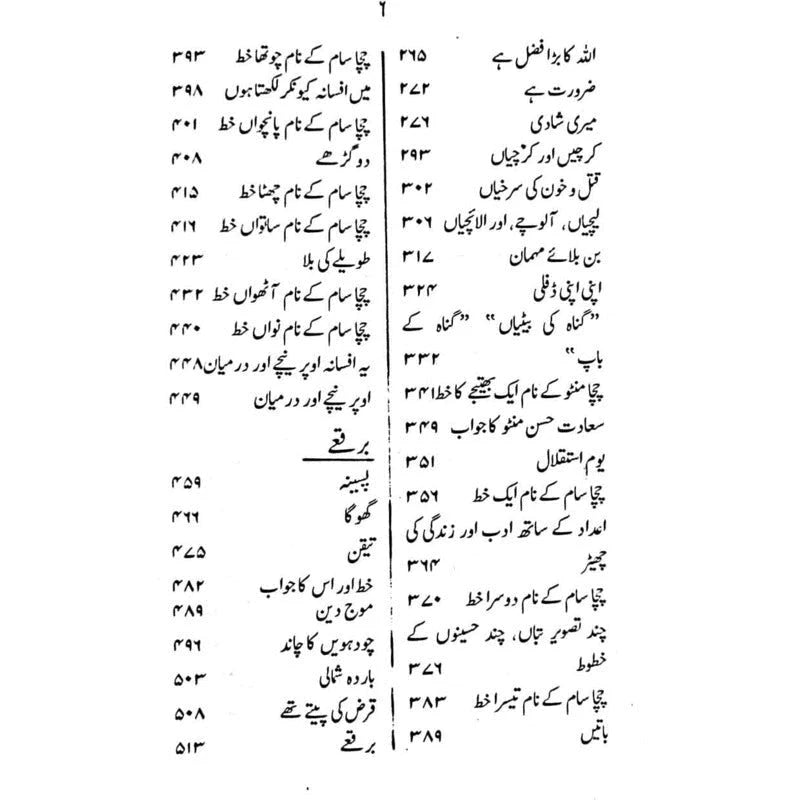 ۶
اللہ کا بڑا فضل ہے ۲۶۵
ضرورت ہے ۲۷۲
میری شادی ۲۷۶
کرچیں اور کرچیاں ۲۹۳
قتل و خون کی سرخیاں ۳۰۲
لیچیاں، آلوچے، اور الائچیاں ۳۰۶
بن بلائے مہمان ۳۱۷
اپنی اپنی ڈفلی ۳۲۴
"گناہ کی بیٹیاں" "گناہ کے
باپ" ۳۳۲
چچا منٹو کے نام ایک بھتیجے کا خط ۳۴۱
سعادت حسن منٹو کا جواب ۳۴۹
یوم استقلال ۳۵۱
چچا سام کے نام ایک خط ۳۵۶
اعداد کے ساتھ ادب اور زندگی کی
چھیڑ ۳۶۴
چچا سام کے نام دوسرا خط ۳۷۰
چند تصویر بتاں، چند حسینوں کے
خطوط ۳۷۶
چچا سام کے نام تیسرا خط ۳۸۳
باتیں ۳۸۹
چچا سام کے نام چوتھا خط ۳۹۳
میں افسانہ کیونکر لکھتا ہوں ۳۹۸
چچا سام کے نام پانچواں خط ۴۰۱
دو گڑھے ۴۰۸
چچا سام کے نام چھٹا خط ۴۱۵
چچا سام کے نام ساتواں خط ۴۱۶
طویلے کی بلا ۴۲۳
چچا سام کے نام آٹھواں خط ۴۳۲
چچا سام کے نام نواں خط ۴۴۰
یہ افسانہ اوپر نیچے اور درمیان ۴۴۸
اوپر نیچے اور درمیان ۴۴۹
برقعے
پسینہ ۴۵۹
گھوگا ۴۶۶
تیقن ۴۷۵
خط اور اس کا جواب ۴۸۲
موج دین ۴۸۹
چودہویں کا چاند ۴۹۶
باردہ شمالی ۵۰۳
قرض کی پیتے تھے ۵۰۸
برقعے ۵۱۳